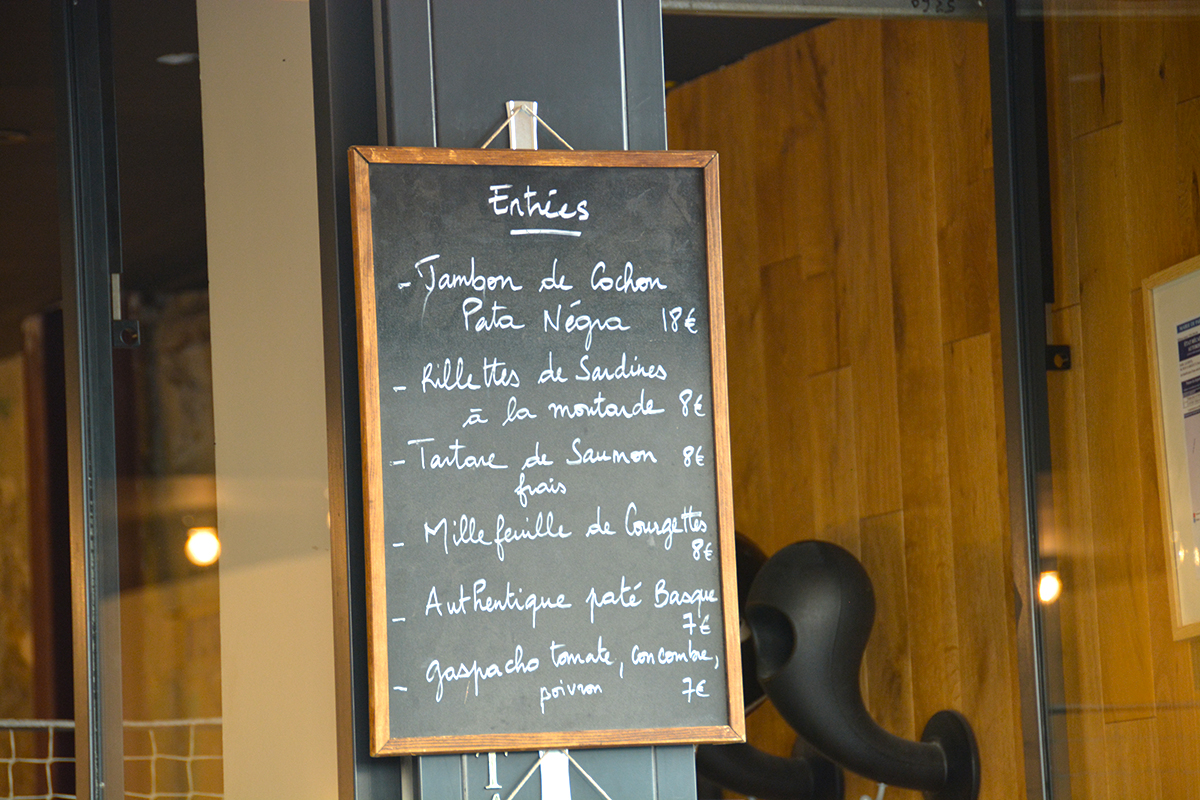 Entrées
- Jambon de Cochon
Pata Négra 18€
- Rillettes de Sardines
à la moutarde 8€
- Tartare de Saumon 8€
frais
- Millefeuille de Courgettes
8€
- Authentique paté Basque
7€
- gaspacho tomate, concombre,
poivron 7€